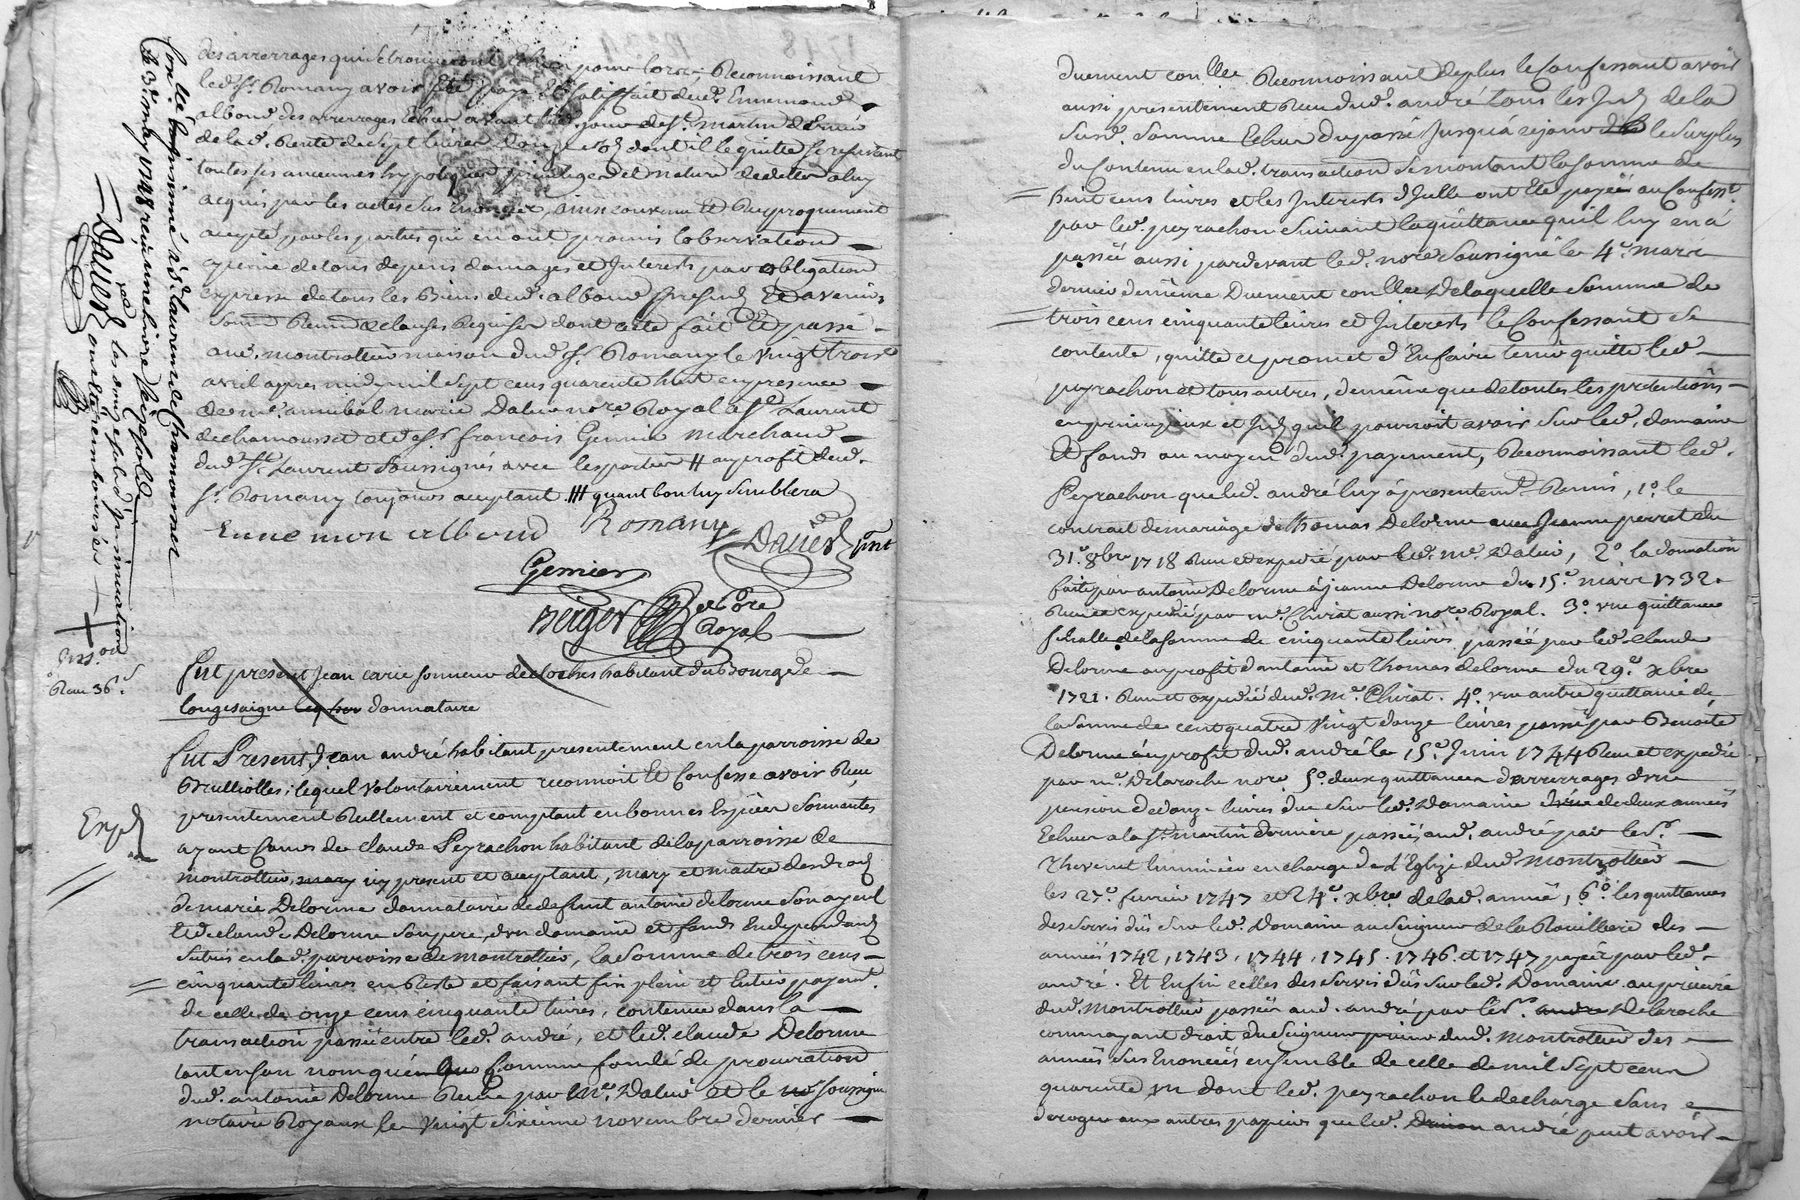 des arrerages qui se trouveront Echus pour lors; Reconnoissant
led. Sr. Romany avoir Eté payé Et satisfait dud. Ennemond
alboud des arrerages Echus avant led. jour de St. martin dernier
de lad. Rente de sept livres douze sols dont il le quitte se reservant
toutes ses anciennes hypoteques privileges et nature de dettes a luy
acquis par les actes sus Enoncés, ainsi convenu Et Reciproquement
accepté par les parties qui en ont promis l'observation
a peine de tous depens domages et Interests par obligation
expresse de tous les Biens dud. alboud presens Et avenirs
sous Renon. et clauses Requises dont acte fait Et passé
aud. montrottier maison dud. Sr. Romany le vingt trois
avril apres midy mil sept cens quarente huit en presence
de me. annibal marie Dalier nore. Royal a St. Laurent
de chamousset et de Sr. françois Gernier marchand
dud. St. Laurent soussignés avec les parties # au profit dud.
Sr. Romany toujours acceptant .### quant bon luy semblera
Ennemon Alboud Romany Dalier pnt
Gernier
Berger nore Royal
Con.llé à St. Laurend de Chamousset
le 3e. may 1748 reçu une livre dix sols
Dalier
les douze sols d'insinuation
ont été remboursés
Insi.on
Reçu 36 s
fut present Jean carié sonneur de cloches habitant du Bourg de
longesaigne lequel donnataire
fut Present Jean andré habitant presentement en la parroisse de
Brulliolles; lequel volontairement reconnoit Et Confesse avoir Reçu
presentement Rellement et comptant en bonnes Especes sonnantes
ayant cours de claude Peyrachon habitant de la parroisse de
montrottier, mary icy present et acceptant, mary et maitre des droits
de marie Delorme donnataire de deffunt antoine delorme son ayeul
Et de claude Delorme son pere, d'un domaine et fonds En dependants
scitués en lad. parroisse de montrottier, la somme de trois cens
cinquante livres en Reste et faisant fin plein et Entier payem.t
de celle de onze cens cinquante livres, contenue dans la
transaction passée entre led. andré, et led. claude Delorme
tant en son nom que comme fondé de procuration
dud. antoine Delorme Reçue par Me. Dalier et le nre soussigné
notaire Royaux le vingt sixieme novembre dernier
Expé
duement con.llée Reconnoissant de plus le Confessant avoir
aussi presentement Reçu dud. andré tous les Int. de la
susd. somme Echus du passé jusqu'a ce jour le surplus
du Contenu en lad. transaction se montant la somme de
huit cens livres et les Interests d'Icelle ont Eté payées au Confess.t
par led. peyrachon suivant la quittance qu'il luy en a
passée aussi pardevant led. nore. soussigné le 4e. mars
dernier de même Duement con.llée de laquelle somme de
trois cens cinquante livres et Interests le Confessant se
contente, quitte et promet d'En faire tenir quitte led.
peyrachon et tous autres, de même que de toutes les pretentions
en principaux et Int. qu'il pourroit avoir sur led. domaine
Et fonds au moyen dud. payement, Reconnoissant led.
Peyrachon que led. andré luy à presentem.t Remis, 1o. le
contrait de mariage de thomas Delorme avec Jeanne perret du
31e. 8bre 1718 Reçu et expedié par led. me. Dalier, 2o la donnation
faite par antoine Delorme à jeanne Delorme du 15e. mars 1732.
Reçue et expedié par me. Chirat aussi nore Royal. 3o. une quittance
de la somme de cinquante livres passée par led. claude
Delorme au profit d'antoine et thomas delorme du 29e. xbre
1721. Reçue et expedié dud. Me. Chirat. 4o. une autre quittance de
la somme de cent quatre vingt douze livres passée par Benoite
Delorme au profit dud. andré le 15e. Juin 1744 Reçue et expedié
par me. Delaroche nore 5o. deux quittances d'arrerages d'une
pension de douze livres due sur led. Domaine de deux années
Echues a la St. martin derniere passées aud. andré par le Sr.
Thevenet luminier en charge de L'Eglize dud. montrottier
les 27e. fevrier 1747 et 24e. xbre de lad. année, 6o. les quittances
des servis dûs sur led. Domaine au seigneur de la Rouilliere des
années 1742, 1743, 1744, 1745. 1746. et 1747 payés par led.
andré. Et Enfin celles des servis dûs sur led. Domaine au prieuré
dud. Montrottier passées aud. andré par le Sr. Delaroche
comme ayant droit du seigneur prieur dud. Montrottier des
années sus Enoncées ensemble de celle de mil sept cens
quarente un dont led. peyrachon le decharge sans
deroger aux autres papiers que led. andré peut avoir